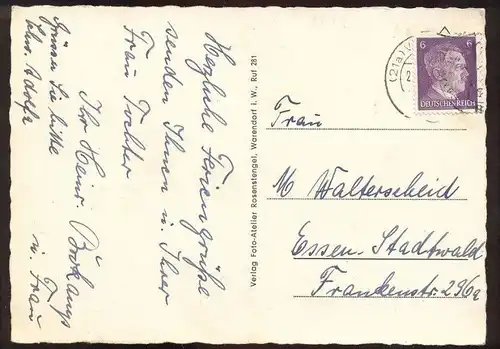 Herzliche Feriengrüße
senden Ihnen u. Ihrer
Frau Tochter
Ihr Heinr.
u. Frau
Grüßen Sie bitte
Verlag Foto-Atelier Rosenstengel, Warendorf i. W., Ruf 281
(21a)
6 6
DEUTSCHES REICH
Frau
M Walterscheid
Essen-Stadtwald
Frankenstr. 296a